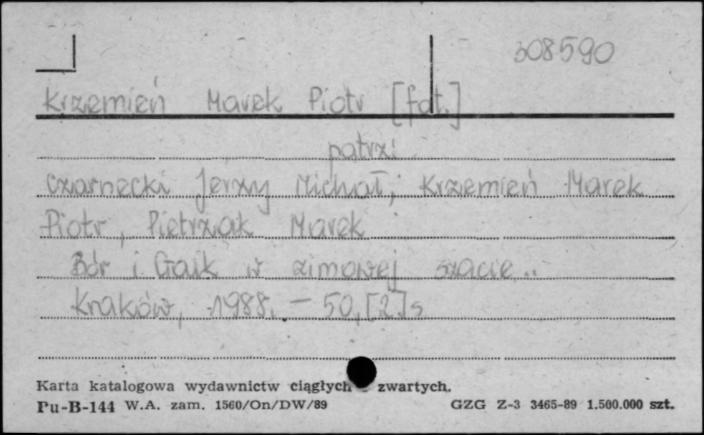 308590
Krzemień Marek Piotr [fot.]
patrz:
Czarnecki Jerzy Michał, Krzemień Marek
Piotr, Pietrzak Marek
Bór i Gaik w zimowej szacie..
Kraków, 1988. – 50, [2] s
Karta katalogowa wydawnictw ciągłych - zwartych.
Pu-B-144 W.A. zam. 1560/On/DW/89 GZG Z-3 3465-89 1.500.000 szt.